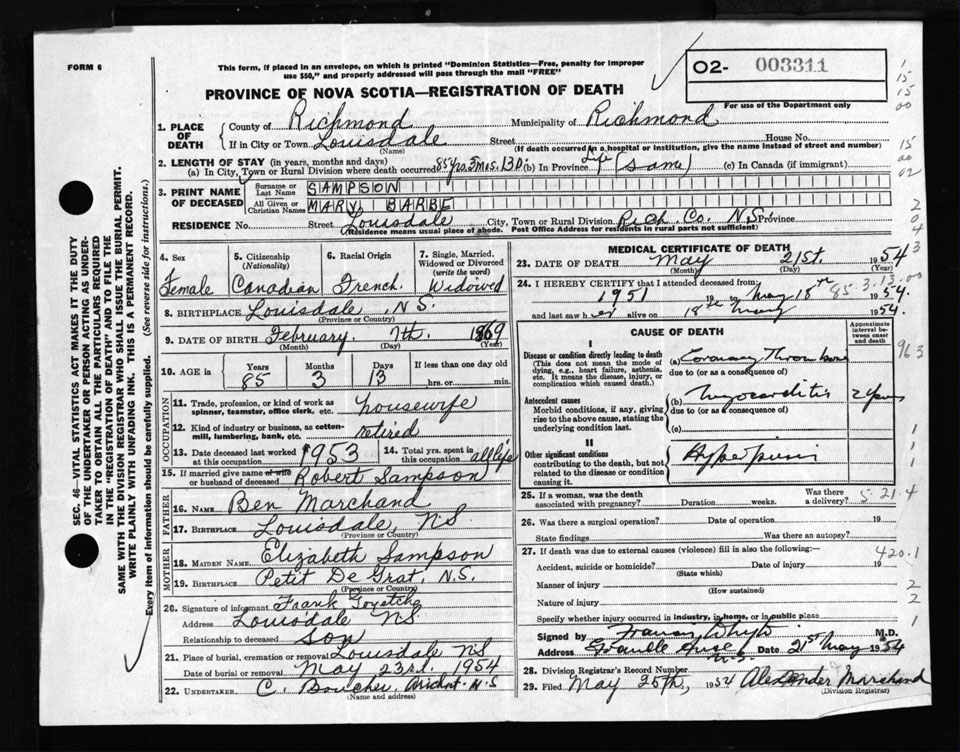 FORM 6
This form, if placed in an envelope, on which is printed "Dominion Statistics—Free, penalty for improper
use $50," and properly addressed will pass through the mail "FREE"
O2- 003311
For use of the Department only
PROVINCE OF NOVA SCOTIA—REGISTRATION OF DEATH
1. PLACE OF DEATH
County of Richmond Municipality of Richmond
If in City or Town Louisdale Street House No.
(Name) (If death occurred in a hospital or institution, give the name instead of street and number)
2. LENGTH OF STAY (in years, months and days)
(a) In City, Town or Rural Division where death occurred 85 yrs. 3 mos. 13 D. (b) In Province Life (same) (c) In Canada (if immigrant)
3. PRINT NAME OF DECEASED
Surname or Last Name SAMPSON
All Given or Christian Names MARY BARBE
RESIDENCE No. Street Louisdale City, Town or Rural Division Rich Co. N S Province
(Residence means usual place of abode. Post Office Address for residents in rural parts not sufficient)
4. Sex Female
5. Citizenship (Nationality) Canadian
6. Racial Origin French
7. Single, Married, Widowed or Divorced (write the word) Widowed
8. BIRTHPLACE Louisdale, N.S.
(Province or Country)
9. DATE OF BIRTH February 7th. 1869
(Month) (Day) (Year)
10. AGE in Years 85 Months 3 Days 13 If less than one day old
hrs. or min.
OCCUPATION
11. Trade, profession or kind of work as
spinner, teamster, office clerk, etc. housewife
12. Kind of industry or business, as cotton-
mill, lumbering, bank, etc. retired
13. Date deceased last worked at this occupation 1953
14. Total yrs. spent in this occupation all life
15. If married give name of wife
or husband of deceased Robert Sampson
FATHER
16. NAME Ben Marchand
17. BIRTHPLACE Louisdale, N.S.
(Province or Country)
MOTHER
18. MAIDEN NAME Elizabeth Sampson
19. BIRTHPLACE Petit De Grat, N.S.
(Province or Country)
20. Signature of informant Frank Goyetche
Address Louisdale NS.
Relationship to deceased Son
21. Place of burial, cremation or removal Louisdale NS
Date of burial or removal May 23rd. 1954
22. UNDERTAKER C. Boucher, N.S
(Name and address)
MEDICAL CERTIFICATE OF DEATH
23. DATE OF DEATH May 21st. 1954
(Month) (Day) (Year)
24. I HEREBY CERTIFY that I attended deceased from:
1951 19 to May 18th 1954.
and last saw her alive on 18th May 1954.
CAUSE OF DEATH
Approximate interval between onset and death
I
Disease or condition directly leading to death
(This does not mean the mode of
dying, e.g., heart failure, asthenia,
etc. It means the disease, injury, or
complication which caused death.)
(a) Coronary Thrombosis
due to (or as a consequence of)
Antecedent causes
Morbid conditions, if any, giving
rise to the above cause, stating the
underlying condition last.
(b) Myocarditis 2 years
due to (or as a consequence of)
(c)
II
Other significant conditions
contributing to the death, but not
related to the disease or condition
causing it.
25. If a woman, was the death
associated with pregnancy? Duration weeks. Was there a delivery?
26. Was there a surgical operation? Date of operation 19
State findings Was there an autopsy?
27. If death was due to external causes (violence) fill in also the following:—
Accident, suicide or homicide? Date of injury 19
(State which)
Manner of injury
(How sustained)
Nature of injury
Specify whether injury occurred in industry, in home, or in public place
Signed by M.D.
Address Date 21st May 1954
N.S.
28. Division Registrar's Record Number
29. Filed May 25th, 1954 Alexander Marchand
(Division Registrar)
SEC. 46—VITAL STATISTICS ACT MAKES IT THE DUTY
OF THE UNDERTAKER OR PERSON ACTING AS UNDER-
TAKER TO OBTAIN ALL THE PARTICULARS REQUIRED
IN THE "REGISTRATION OF DEATH" AND TO FILE THE
SAME WITH THE DIVISION REGISTRAR WHO SHALL ISSUE THE BURIAL PERMIT.
WRITE PLAINLY WITH UNFADING INK. THIS IS A PERMANENT RECORD.
Every item of information should be carefully supplied. (See reverse side for instructions.)
1
15
15
00
15
00
02
2
0
4
3
85.3.13.00
963
1
1
1
1
5.21.4
420.1
2
2
1